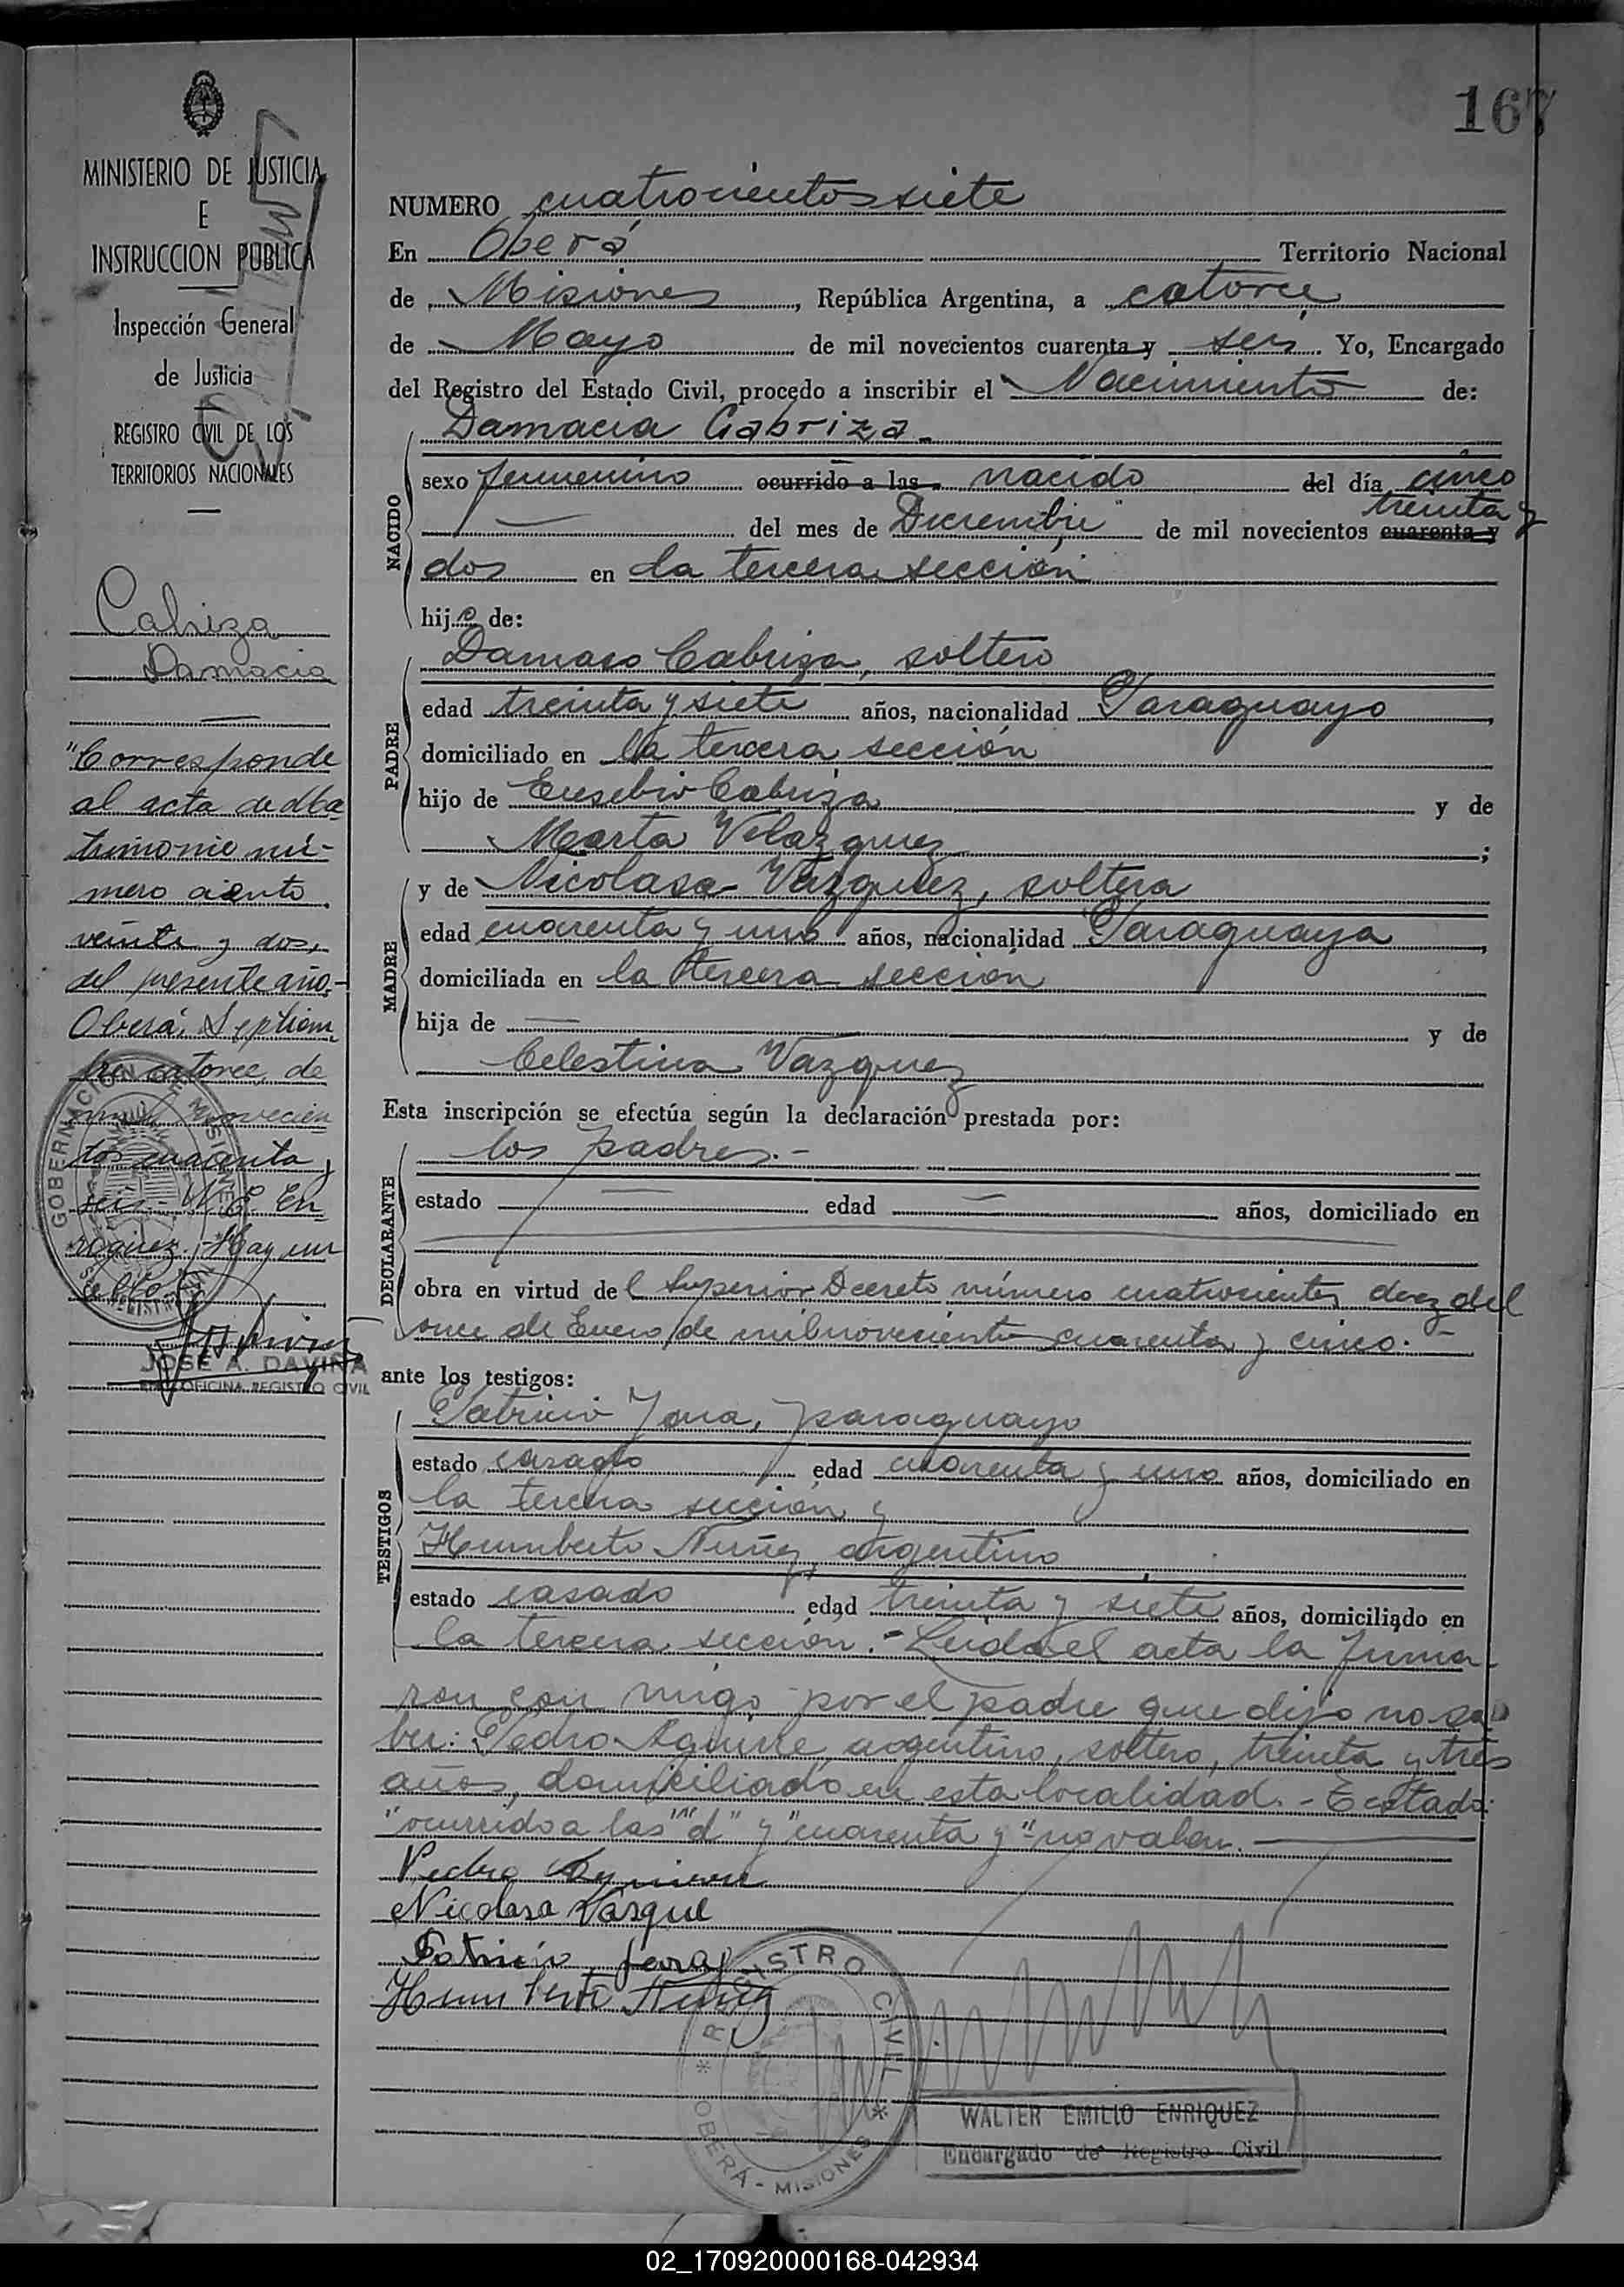 167
MINISTERIO DE JUSTICIA
E
INSTRUCCION PUBLICA
Inspección General
de Justicia
REGISTRO CIVIL DE LOS
TERRITORIOS NACIONALES
Cabriza
Damacia
"Corresponde
al acta de Ma
trimonio nú-
mero ciento
veinte y dos,
del presente año.-
Oberá, Septiem
bre catorce de
mil novecien
tos cuarenta y
seis. W. E. En
riquez. Hay un
sello.
GOBERNACION DE MISIONES
JOSE A. DAVIÑA
OFICINA REGISTRO CIVIL
NUMERO cuatrocientos siete
En Oberá Territorio Nacional
de Misiones, República Argentina, a catorce
de Mayo de mil novecientos cuarenta y seis. Yo, Encargado
del Registro del Estado Civil, procedo a inscribir el Nacimiento de:
NACIDO
Damacia Cabriza.
sexo femenino ocurrido a las nacido del día cinco
treinta y
del mes de Diciembre de mil novecientos cuarenta y
dos en la tercera sección
hija de:
PADRE
Damaso Cabriza, soltero
edad treinta y siete años, nacionalidad Paraguayo,
domiciliado en la tercera sección
hijo de Eusebio Cabriza y de
Marta Velazquez;
MADRE
y de Nicolasa Vazquez, soltera
edad cuarenta y uno años, nacionalidad Paraguaya,
domiciliada en la tercera sección
hija de — y de
Celestina Vazquez
Esta inscripción se efectúa según la declaración prestada por:
DECLARANTE
los padres.-
estado — edad — años, domiciliado en
obra en virtud del Superior Decreto número cuatrocientos diez del
once de Enero de mil novecientos cuarenta y cinco.-
ante los testigos:
TESTIGOS
Patricio Jara, paraguayo
estado casado edad cuarenta y uno años, domiciliado en
la tercera sección y
Humberto Nuñez, argentino
estado casado edad treinta y siete años, domiciliado en
la tercera sección.- Leida el acta la firma-
ron con migo por el padre que dijo no sa-
ber: Pedro Aguirre, argentino, soltero, treinta y tres
años, domiciliado en esta localidad.- Testado:
"ocurrido a las" "d" y "cuarenta y" - no valen.
Pedro Aguirre
Nicolasa Vasque
Patricio Jara
Humberto Nuñez
REGISTRO CIVIL
OBERÁ - MISIONES
WALTER EMILIO ENRIQUEZ
Encargado de Registro Civil
02_170920000168-042934